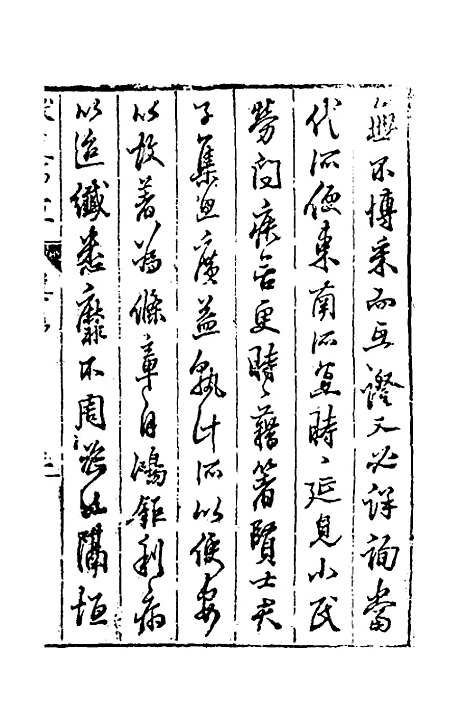 無不博采而互證又必詳詢當
代所便東南所宜時〻延見小民
勞問疾苦更時〻藉箸賢士夫
子集思廣益孰計所以便安
以故著為條章自鴻鉅利病
以迨纖悉靡不周悉如隔垣